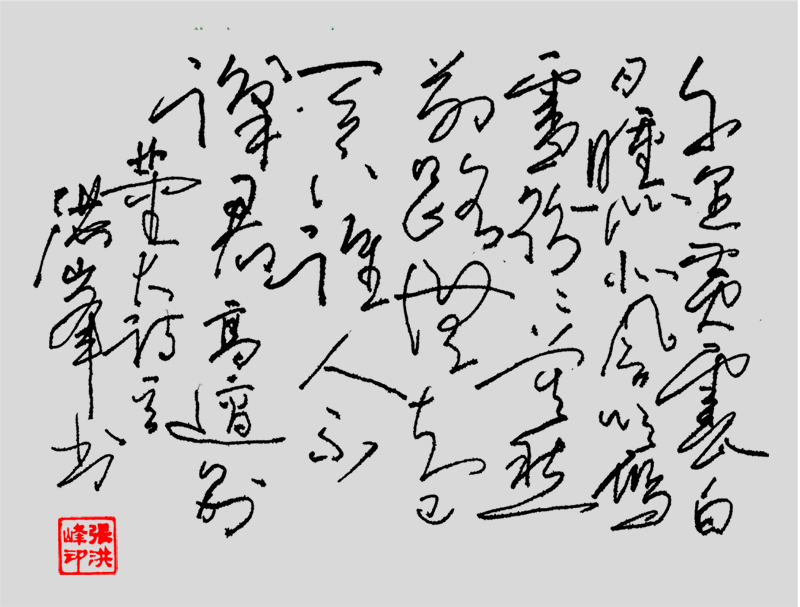 千里黄雲白
日曛北風吹雁
雪紛々莫愁
前路無知己
天下誰人不
識君高適別
董大詩
洪峰书
張洪
峰印